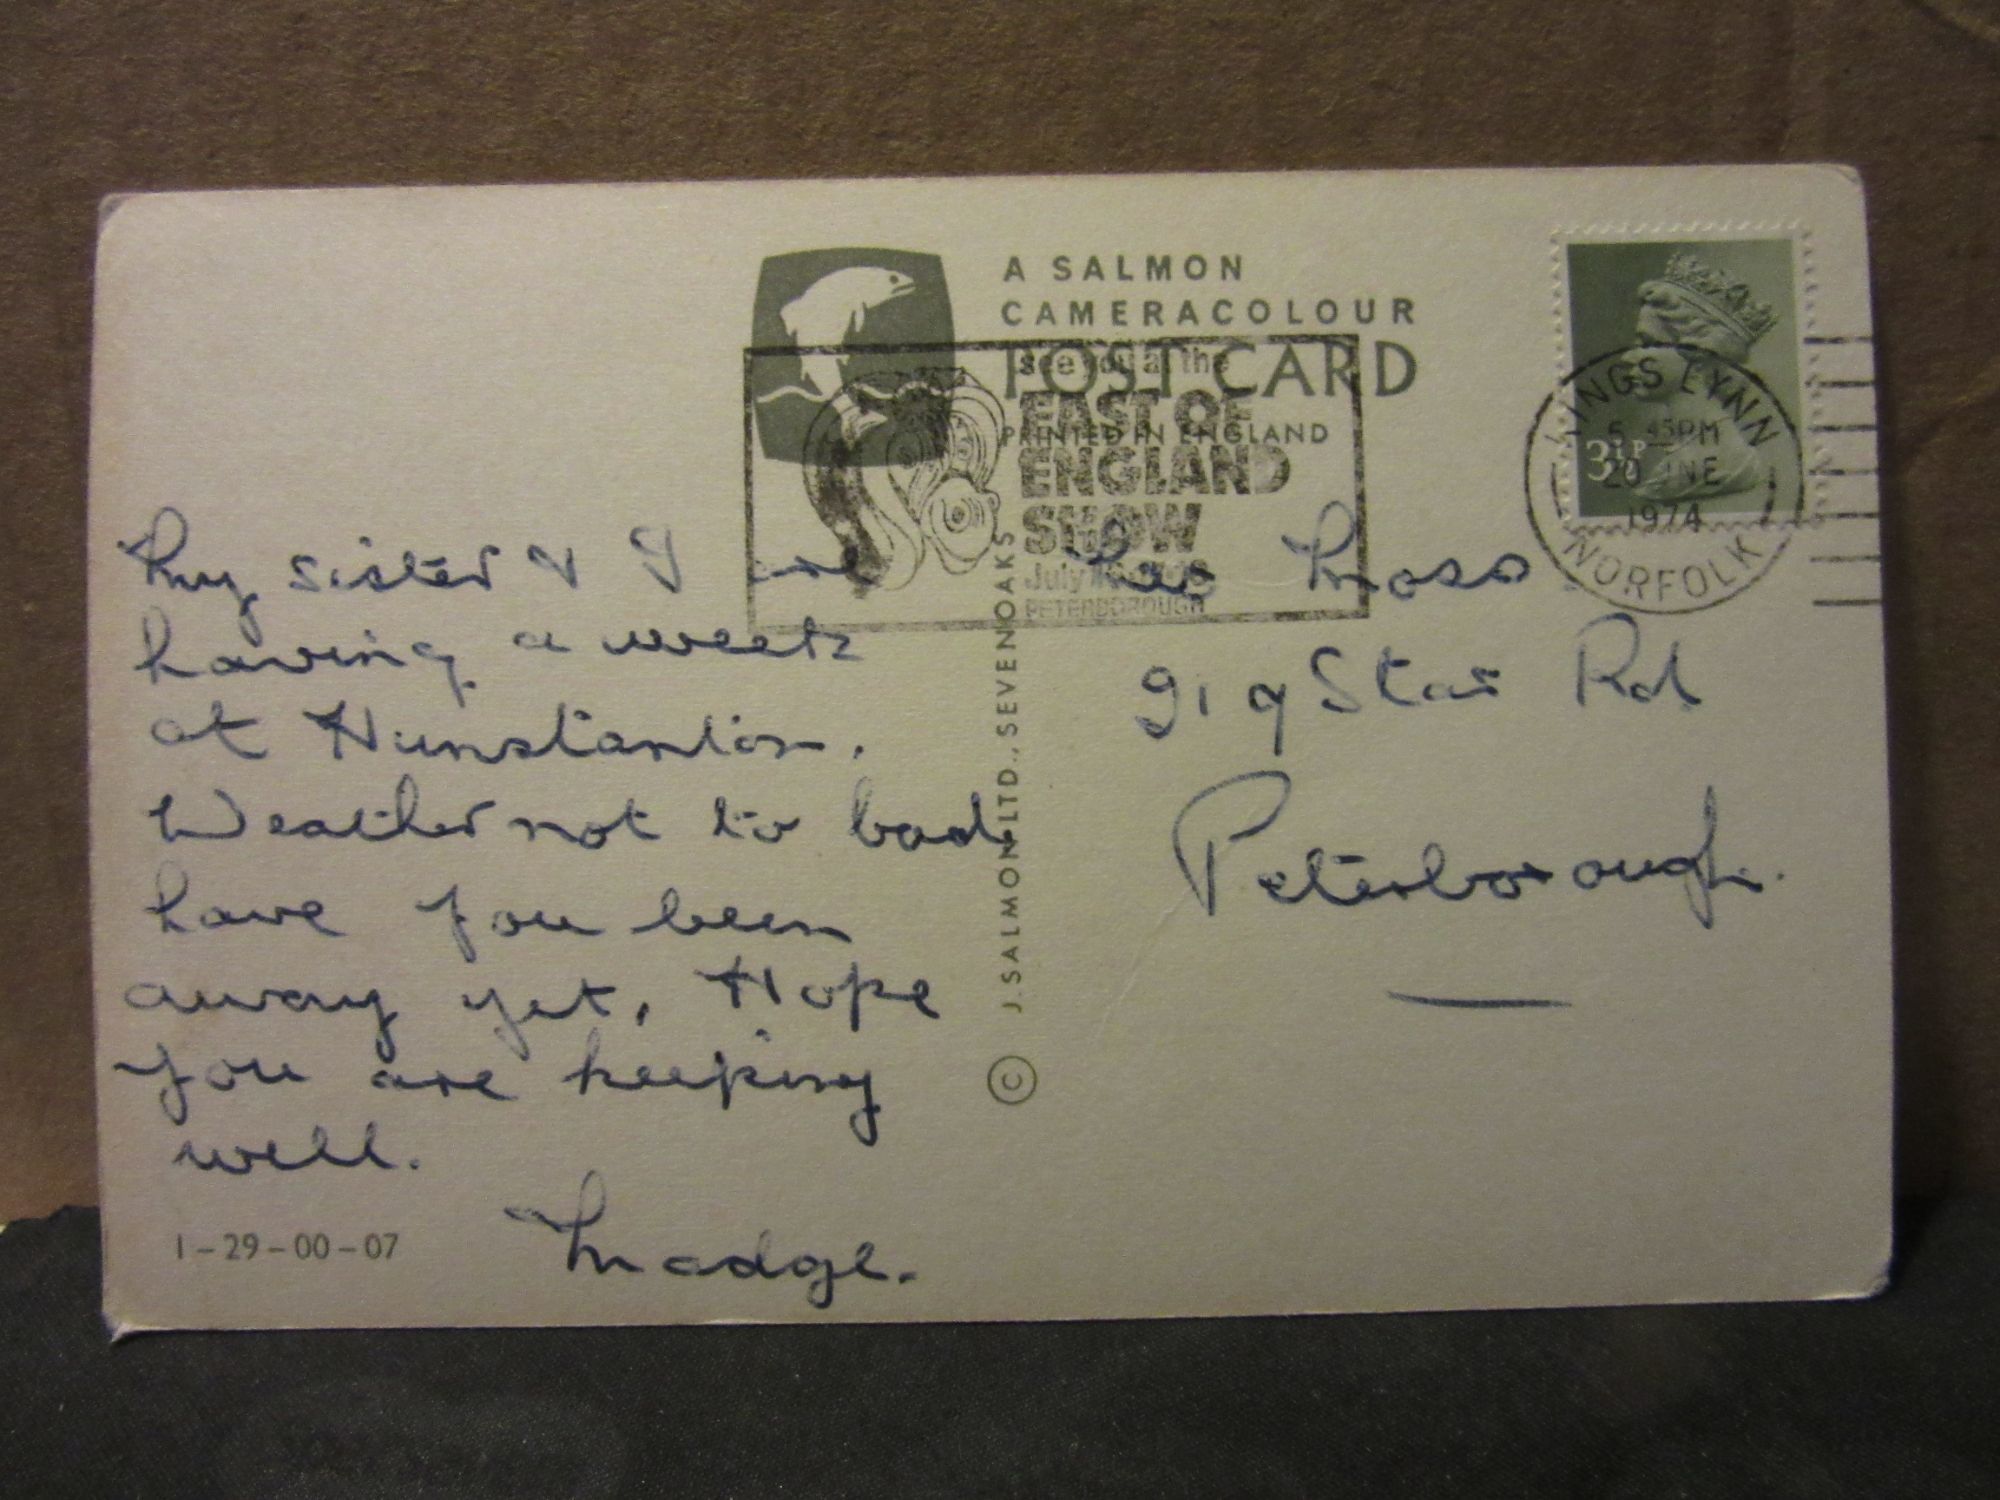 A SALMON
CAMERACOLOUR
POST CARD
PRINTED IN ENGLAND
see you at the
EAST OF
ENGLAND
SHOW
July
PETERBOROUGH
3½P
KINGS LYNN
5 45PM
20 JNE
1974
NORFOLK
My sister & I are
having a week
at Hunstanton.
Weather not to bad
have you been
away yet, Hope
you are keeping
well.
Madge.
Moss
Star Rd
Peterborough.
J. SALMON LTD., SEVENOAKS
©
1-29-00-07